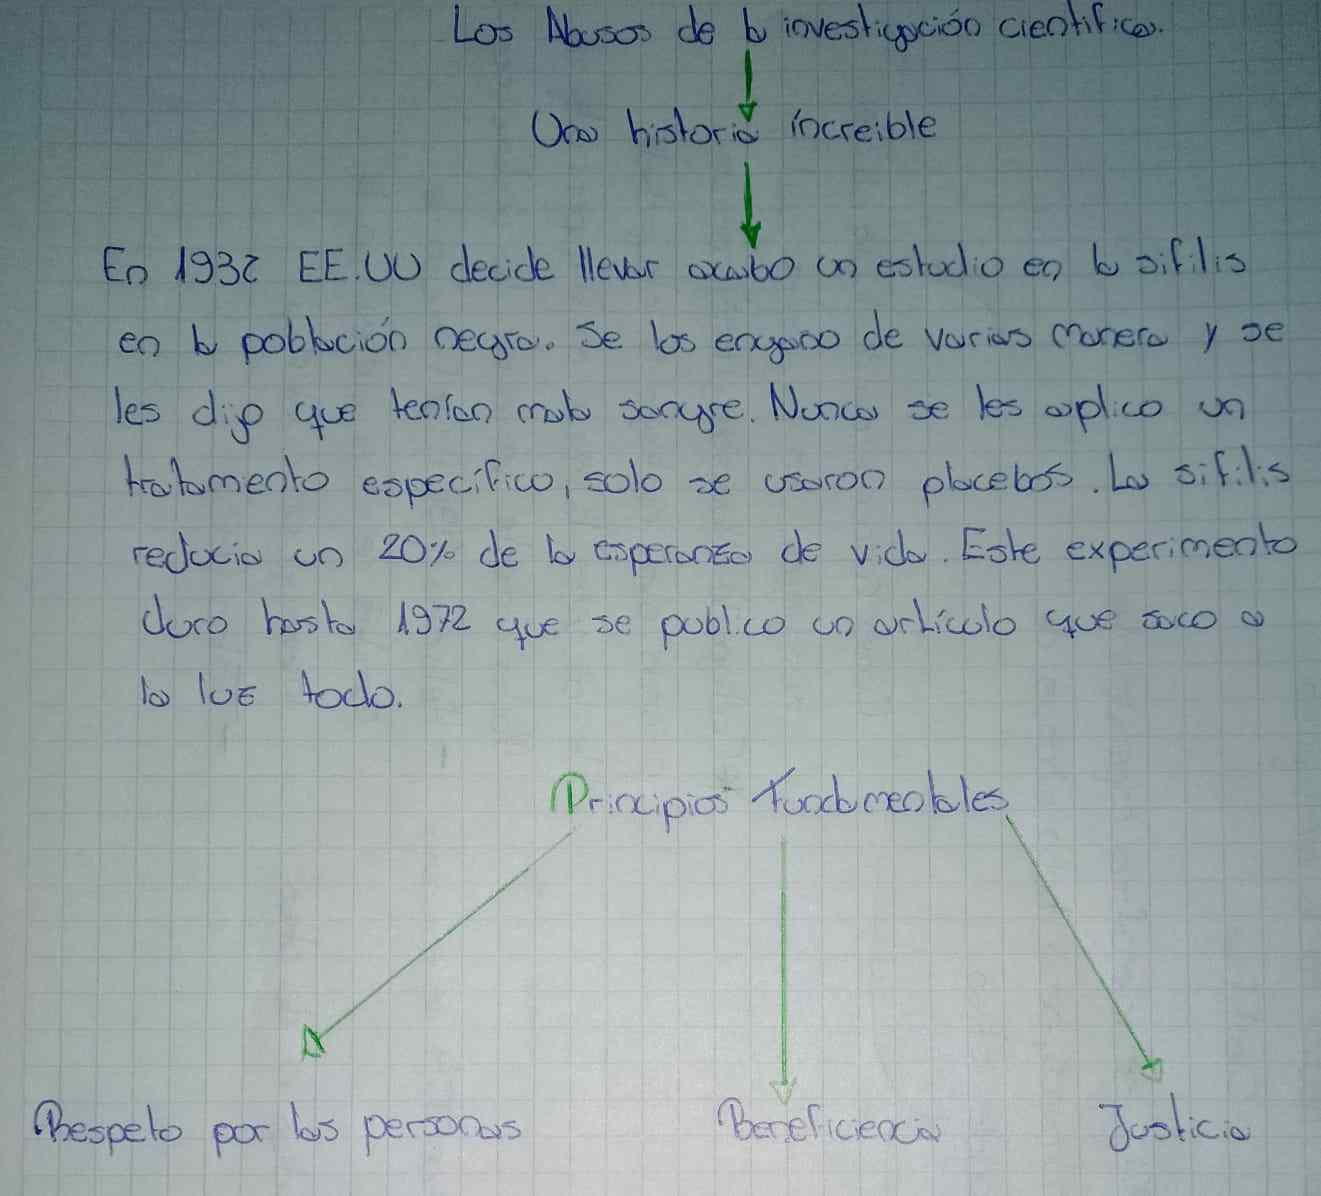 Los Abusos de la investigación cientifica.
Una historia increible
En 1932 EE.UU decide llevar acabo un estudio en la sifilis
en la población negra. Se los engano de varias manera y se
les dijo que tenían mala sangre. Nunca se les aplico un
tratamento específico, solo se usaron placebos. La sifilis
reducia un 20% de la esperanza de vida. Este experimento
duro hasta 1972 que se publico un artículo que saco a
la luz todo.
Principios Fundamentales
Respeto por las personas Beneficiencia Justicia